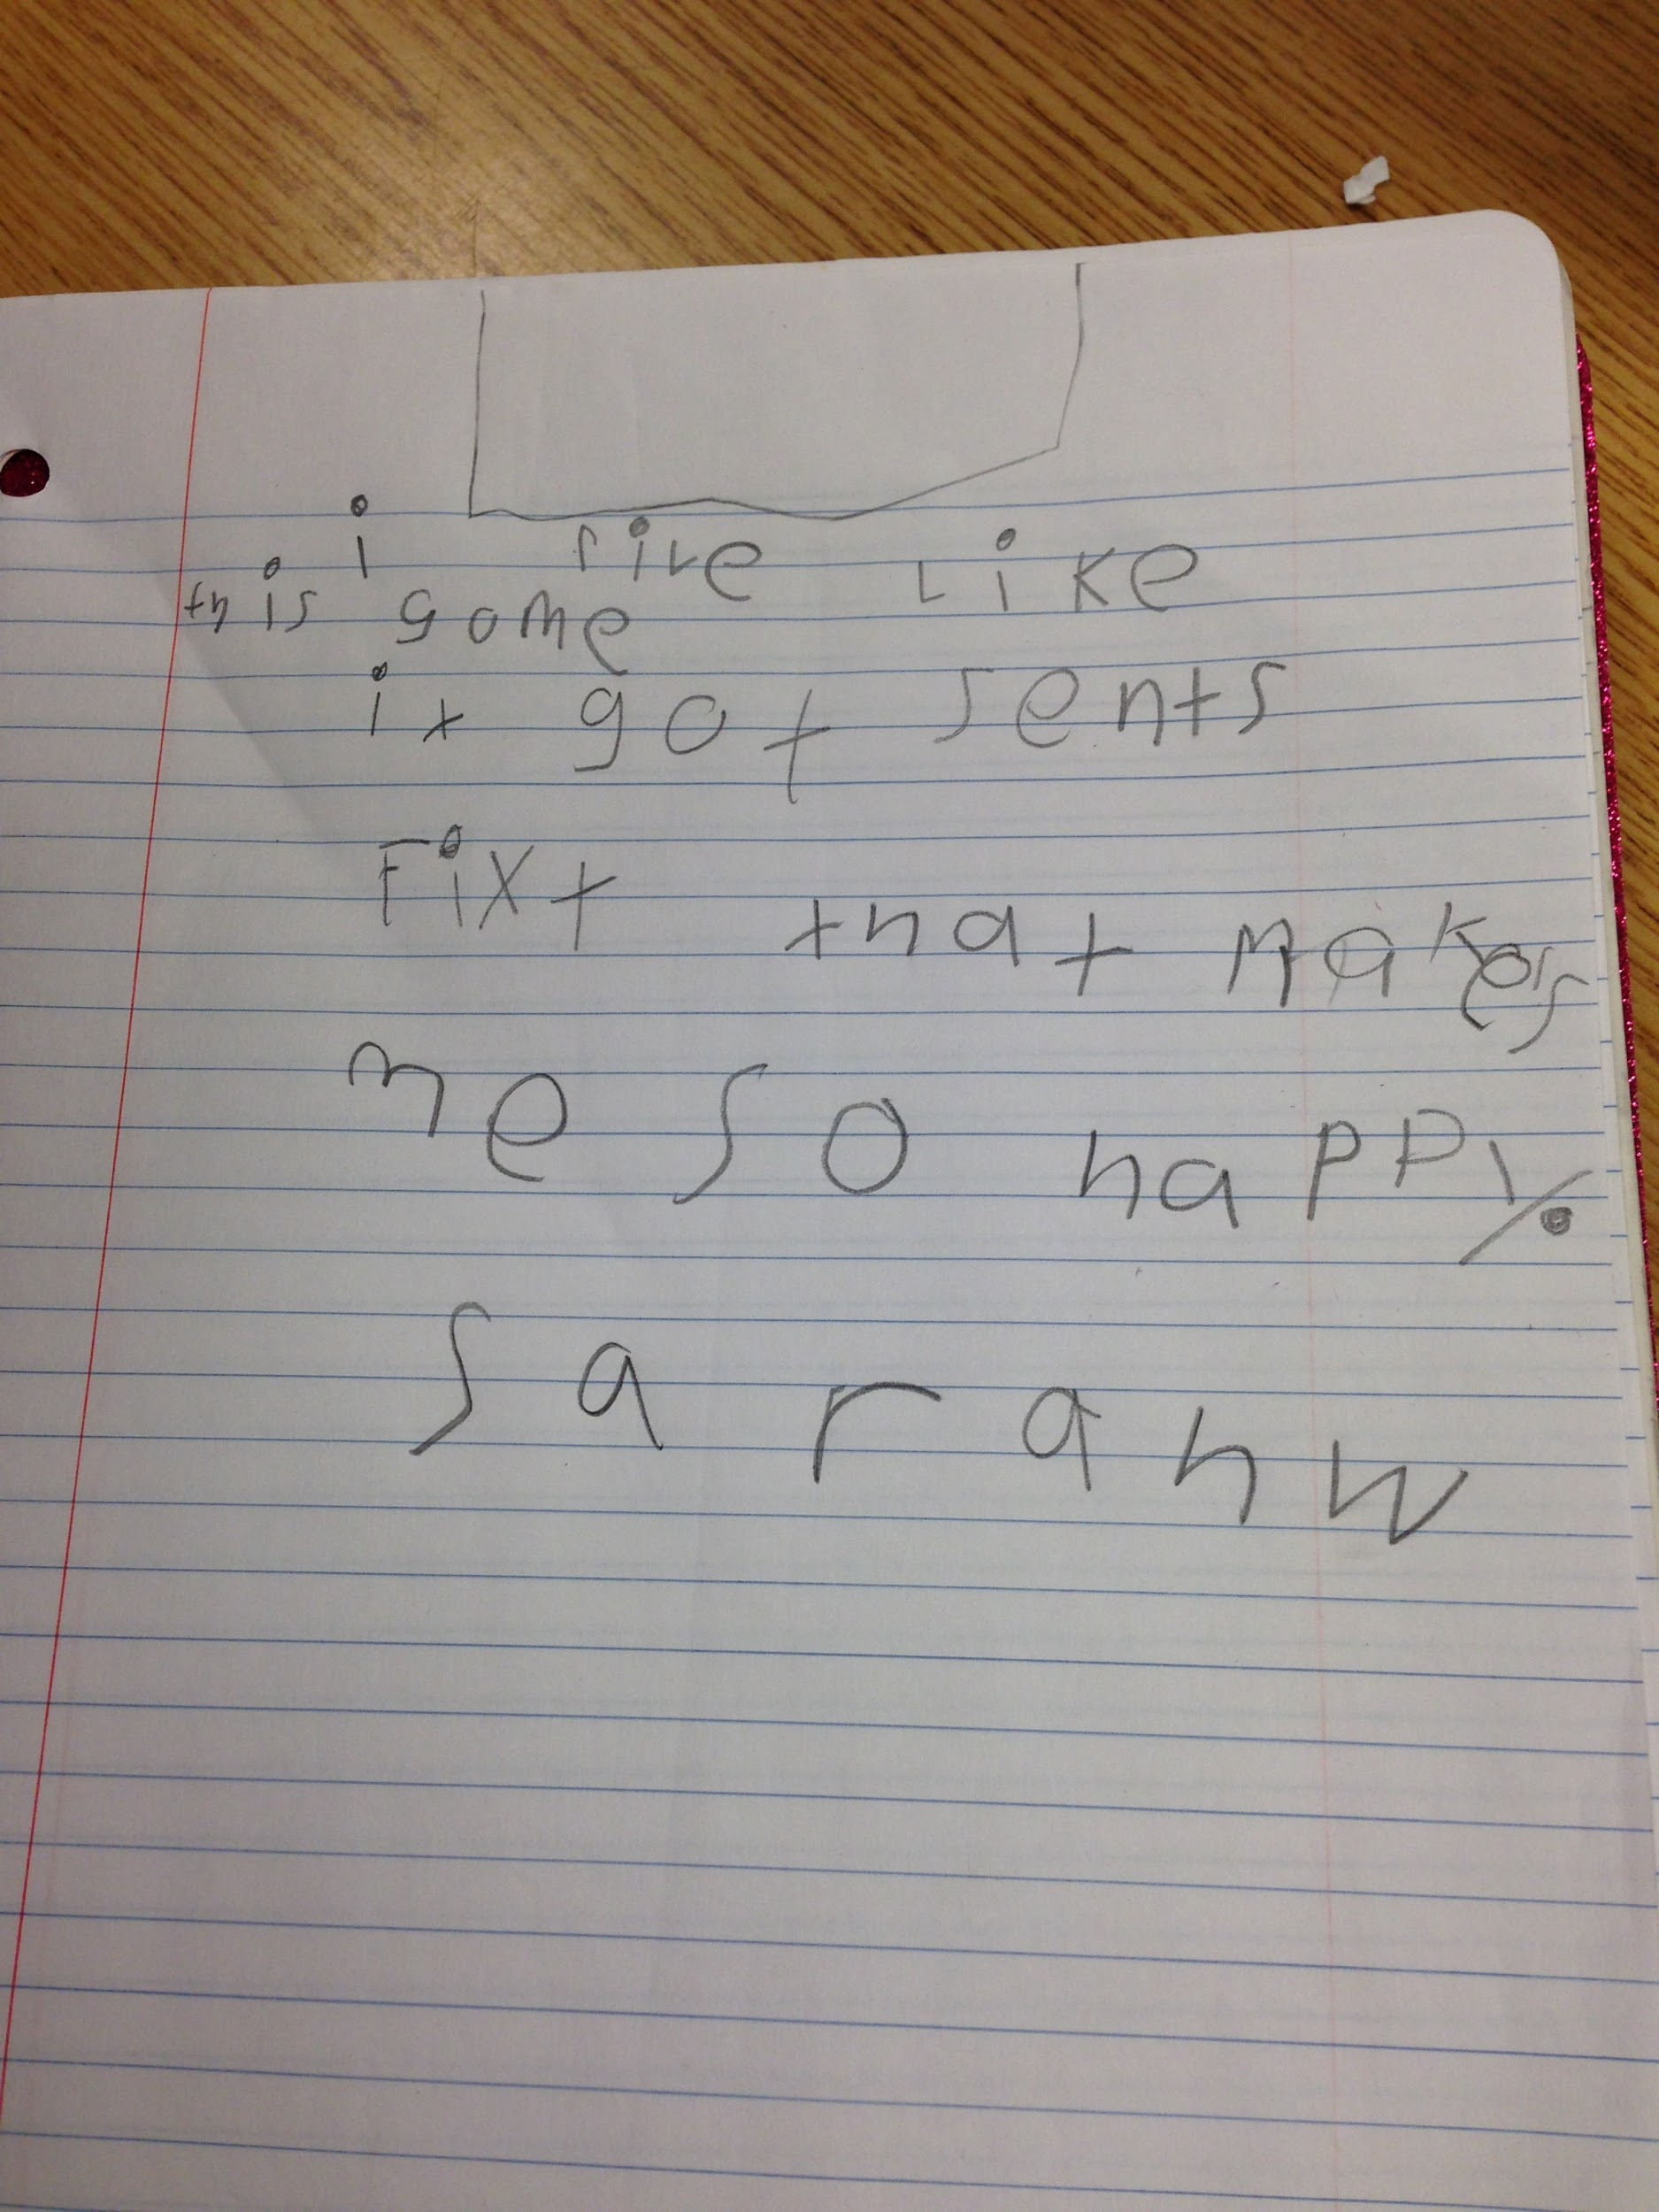 i five like
this some
it got sents
Fixt that makes
me so happy.
sarah w